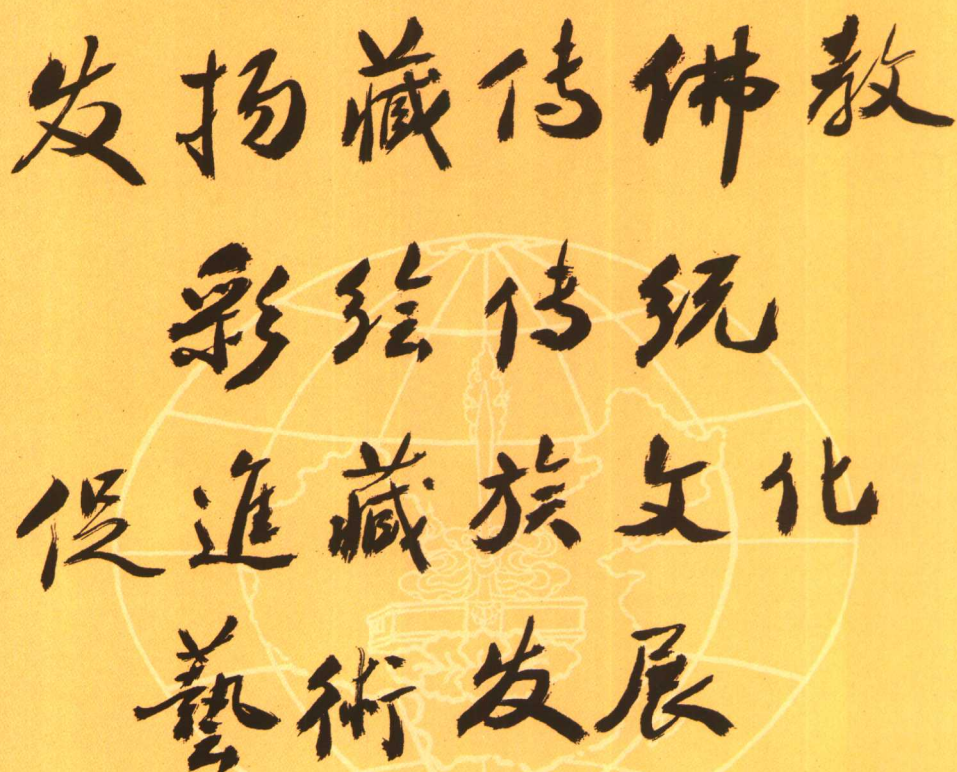 发扬藏传佛教
彩绘传统
促進藏族文化
藝術发展